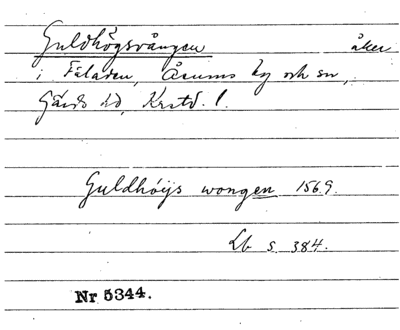 Guldhögsvången åker
i Fäladen, Åsums by och sn,
Gärds hd, Krstd. l.
Guldhöijs wongen 1569.
Lb s. 384.
Nr 5344.